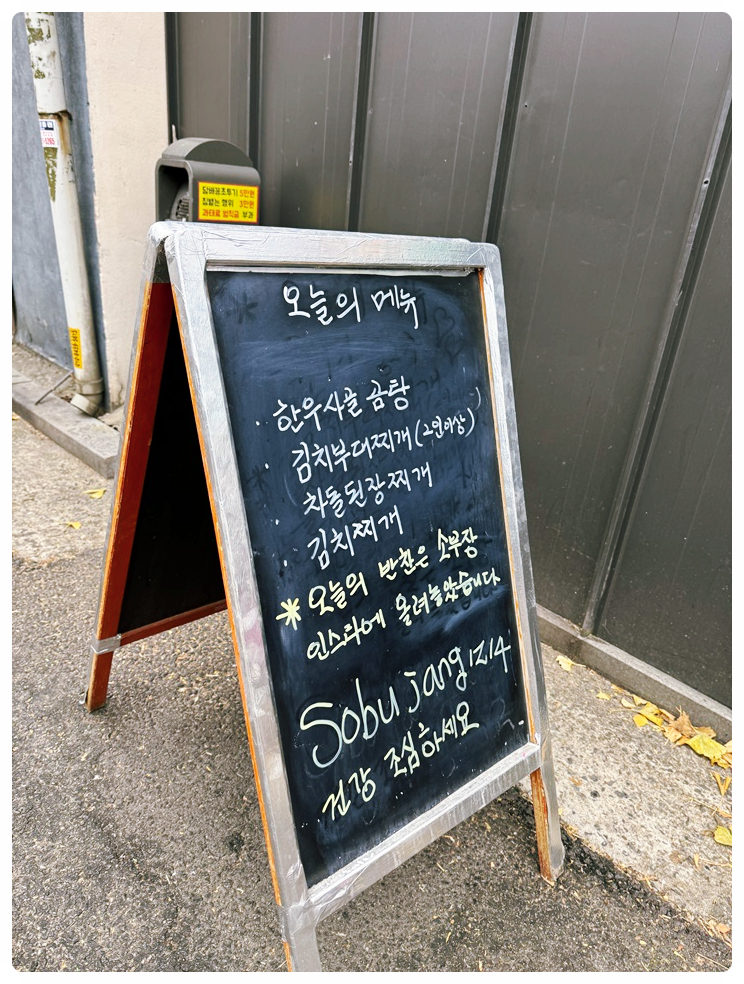 담배꽁초투기 5만원
침뱉는 행위 3만원
과태료 범칙금 부과
오늘의 메뉴
· 한우사골 곰탕
· 김치부대찌개 (2인이상)
· 차돌된장찌개
· 김치찌개
* 오늘의 반찬은 소부장
인스타에 올려놓았습니다
Sobujang1214
건강 조심하세요